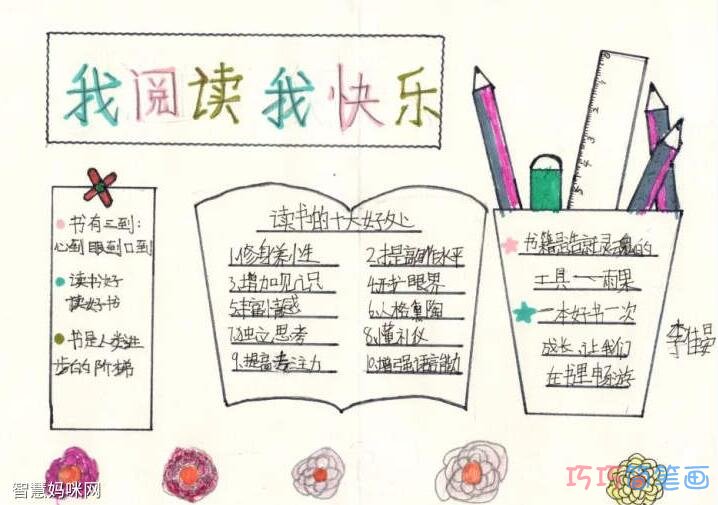 我阅读我快乐
书有三到:
心到眼到口到
读书好
读好书
书是人类进
步的阶梯
读书的十大好处
1.修身养性
2.提高写作水平
3.增加见识
4.开扩眼界
5.丰富情感
6.人格熏陶
7.独立思考
8.懂礼仪
9.提高专注力
10.增强语言能力
书籍是铸就灵魂的
工具——雨果
一本好书一次
成长,让我们
在书里畅游
智慧妈咪网
巧巧简笔画